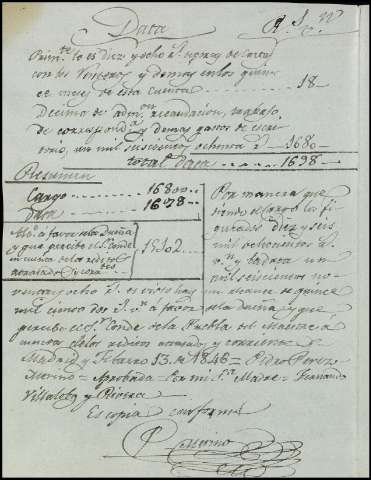 Data
Prim.te lo es diez y ocho r.s de cartas
con los Venteros y demas en los quince
meses de esta cuenta 18
Decima de adm.on recaudacion, trabajo,
de correspond.a y demas gastos de escri
torio, un mil seiscientos ochenta r.s 1680
total Data 1698
Resumen
Cargo 16800
Data 1698
Alc.e a favor de la Dueña
y que percibe el S.r Conde
en cuenta de los reditos
atrasados y corr.tes
15102
Por manera que
siendo el cargo los fi
gurados diez y seis
mil ochocientos r.s
v.n y la data un
mil seiscientos no
venta y ocho r.s es visto hay un alcance de quince
mil ciento dos r.s v.n a favor de la dueña y que
percibe el S.r Conde de la Puebla del Maestre á
cuenta de los reditos atrasad.s y corrientes
Madrid y Febrero 13 de 1846 = Pedro Perez
Merino = Aprobada = Por mi S.ra Madre = Fernando
Villalobos y Rivera
Es copia conforme
Merino